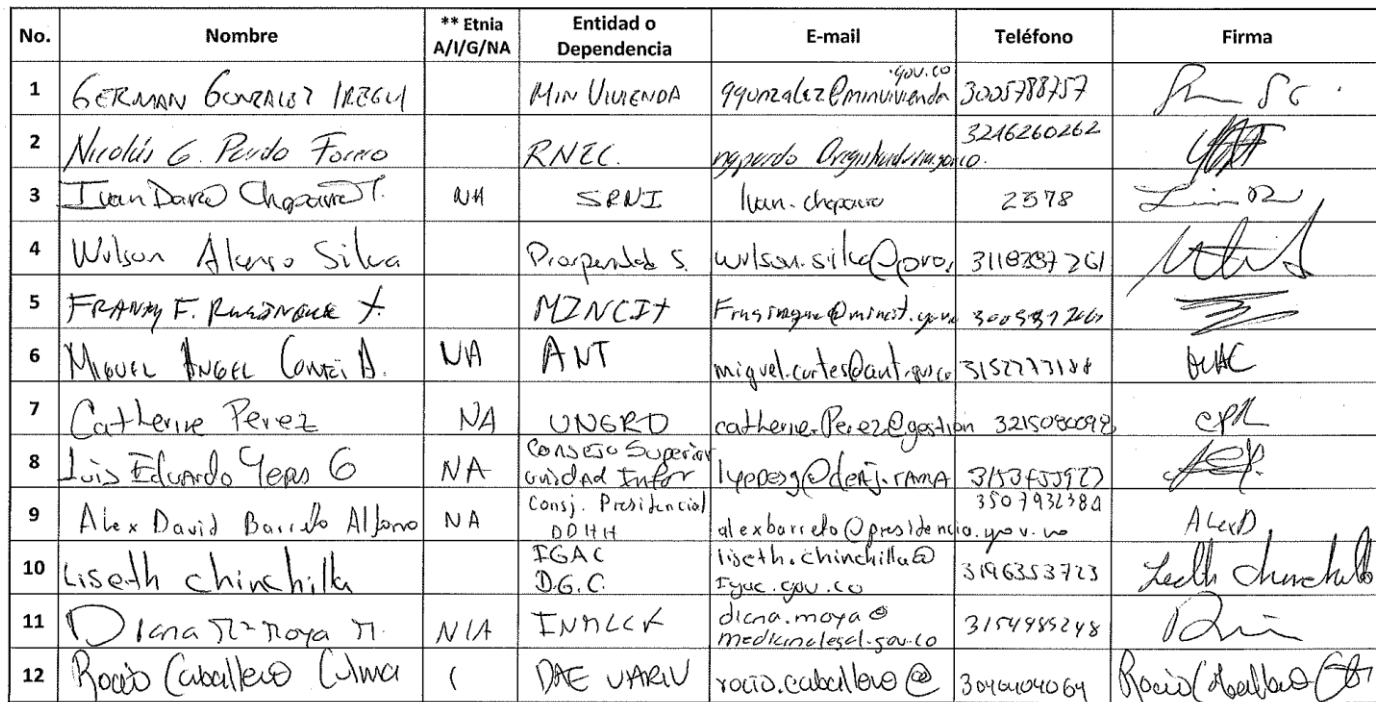 No. Nombre ** Etnia A/I/G/NA Entidad o Dependencia E-mail Teléfono Firma
1 GERMAN GONZALEZ IREGUI MIN VIVIENDA ggonzalez@minvivienda .gov.co 3005788757
2 Nicolás G. Pardo Forero RNEC. 3246260262
3 Ivan Dario Chaparro T. NA SRNI Ivan.chaparro 2578
4 Wilson Alonso Silva Prosperidad S. wilson.silva@pros 3118287261
5 FRANKY F. MINCIT
6 MIGUEL ANGEL A. NA ANT miguel.cortes@ant.gov.co 3152773188
7 Catherine Perez NA UNGRD catherine.Perez@gestion 3215080098 CPR
8 Luis Eduardo Yepes G NA Consejo Superior Unidad Infor lyepesg@deaj.rama
9 Alex David Barreto Alfonso NA Consj. Presidencial DDHH alexbarreto@presidencia.gov.co AlexD
10 Liseth chinchilla IGAC D.G.C. liseth.chinchilla@ Igac.gov.co 3196353723 Liseth chinchilla
11 Diana Moya M. N/A INMLCF diana.moya@ medicinalegal.gov.co 3154985248
12 Rocío Caballero Culma ( DAE UARIV rocio.caballero@ Rocío Caballero